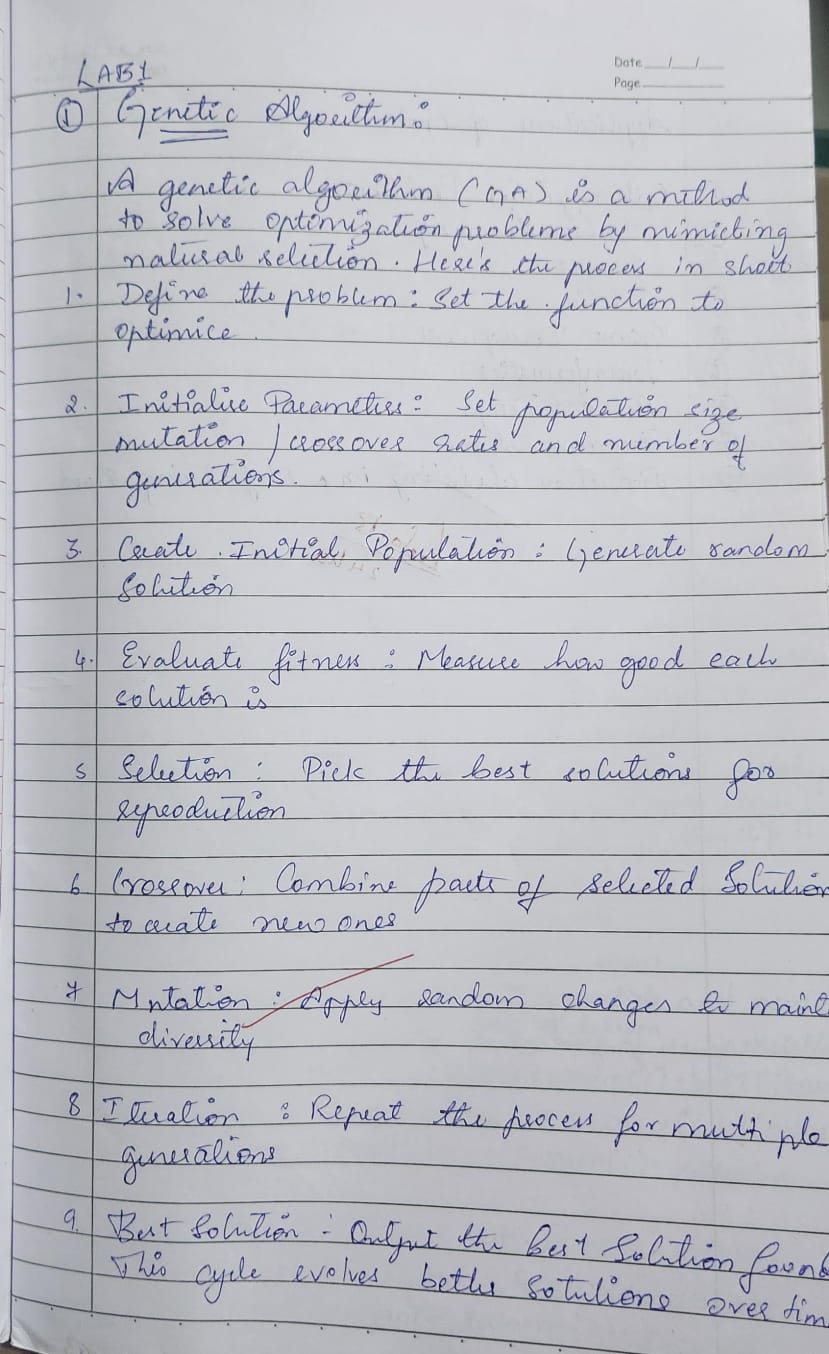 Date / /
Page
LAB1
① Genetic Algorithm:
A genetic algorithm (GA) is a method
to solve optimization problems by mimicking
natural selection. Here's the process in short
1. Define the problem: Set the function to
optimice.
2. Initialise Parameters: Set population size
mutation / crossover rates and number of
generations.
3. Create Initial Population: Generate random
Solution
4. Evaluate fitness: Measure how good each
solution is
5 Selection: Pick the best solutions for
reproduction
6 Crossover: Combine parts of selected Solution
to create new ones
7 Mutation: Apply random changes to maint
diversity
8 Iteration: Repeat the process for multiple
generations
9. Best Solution: Output the best Solution found
This cycle evolves better solutions over tim